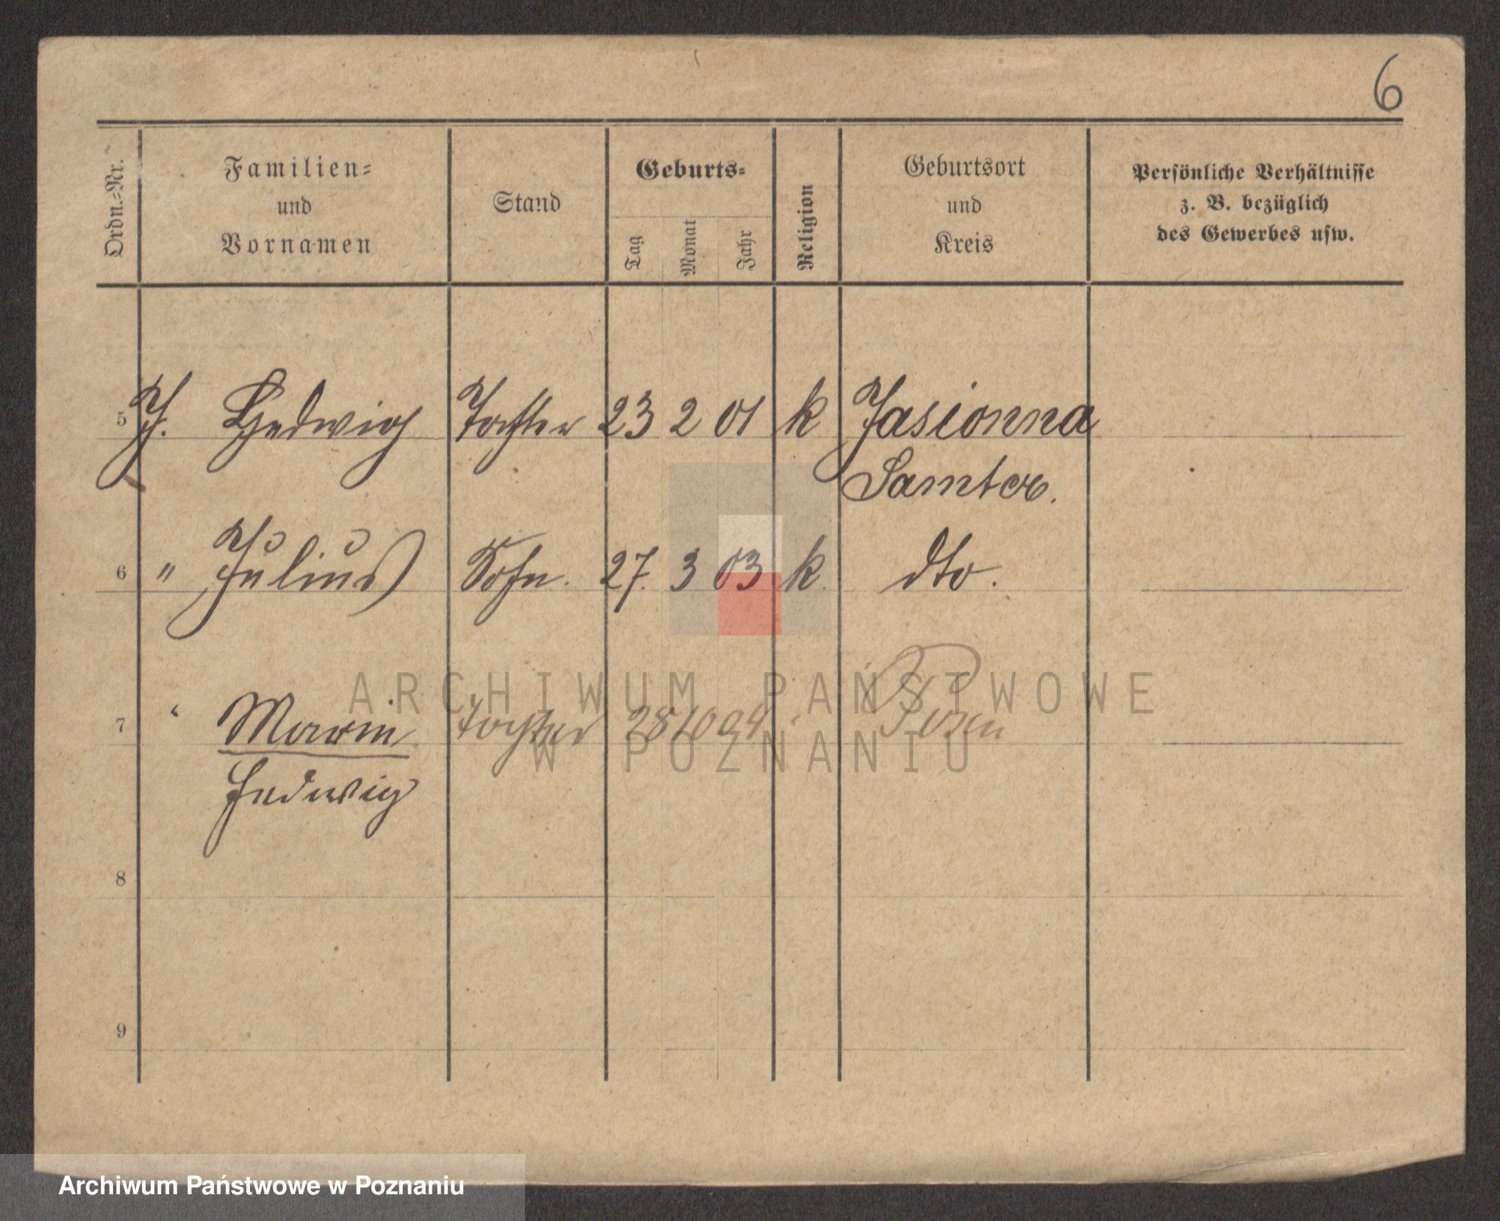 6
Ordn.-Nr.
Familien-
und
Vornamen
Stand
Geburts-
Tag
Monat
Jahr
Religion
Geburtsort
und
Kreis
Persönliche Verhältnisse
z. B. bezüglich
des Gewerbes usw.
5 J. Hedwig Tochter 23 2 01 k Jasionna
Samter.
6 " Julius Sohn. 27. 3 03 k. dto.
7 " Marie Tochter 28 10 04 Posen
Hedwig
8
9
ARCHIWUM PAŃSTWOWE
W POZNANIU
Archiwum Państwowe w Poznaniu